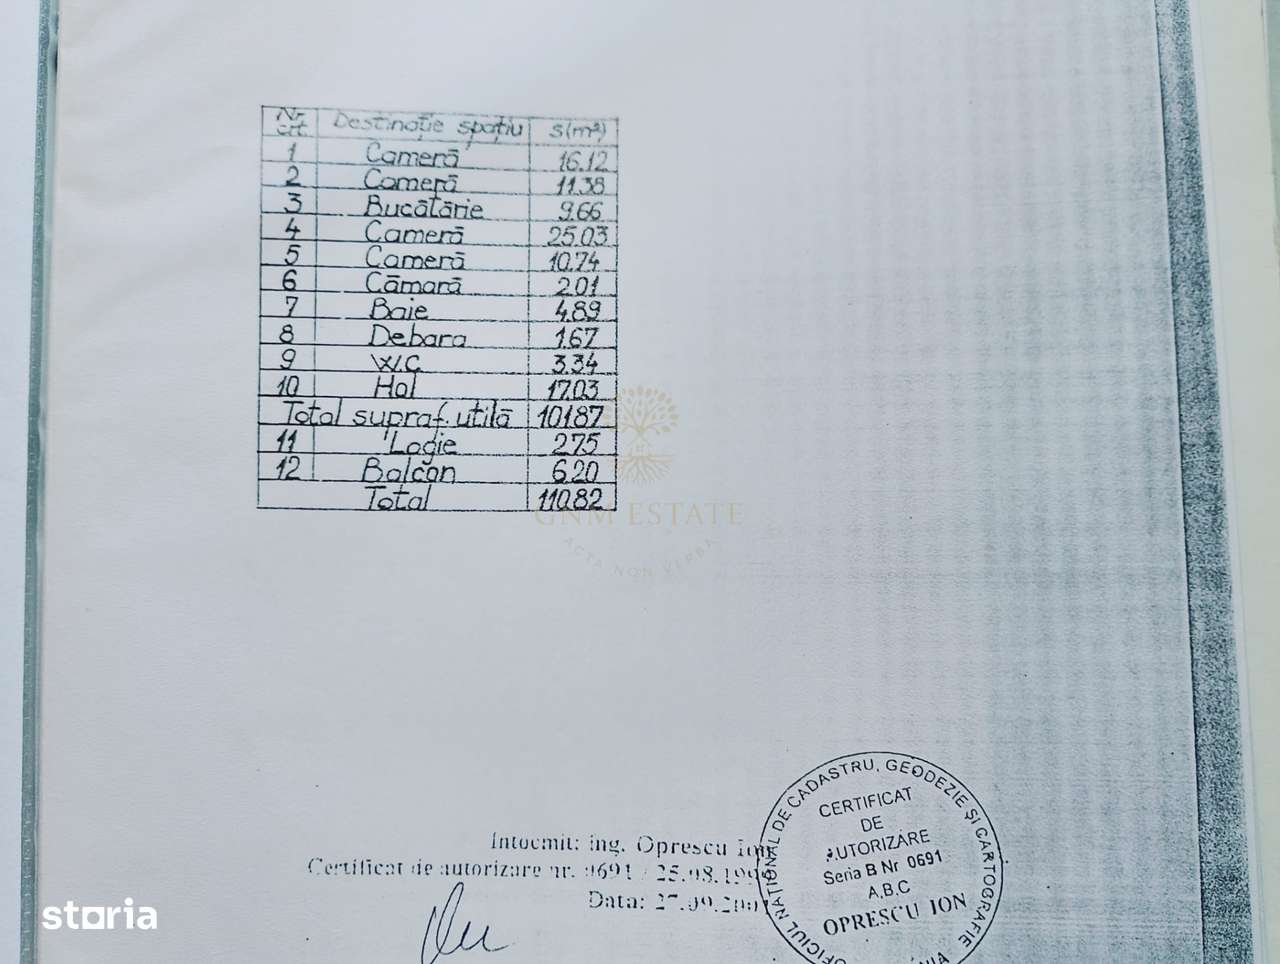 Nr. crt. Destinație spațiu s(m²)
1 Cameră 16.12
2 Cameră 11.38
3 Bucătărie 9.66
4 Cameră 25.03
5 Cameră 10.74
6 Cămară 2.01
7 Baie 4.89
8 Debara 1.67
9 W.C 3.34
10 Hol 17.03
Total supraf. utilă 101.87
11 Logie 2.75
12 Balcon 6.20
Total 110.82
GNM ESTATE
ACTA NON VERBA
Intocmit: ing. Oprescu Ion
Certificat de autorizare nr. 0691 / 25.08.199
Data: 27.09.200
OFICIUL NAȚIONAL DE CADASTRU, GEODEZIE ȘI CARTOGRAFIE
CERTIFICAT
DE
AUTORIZARE
Seria B Nr 0691
A,B,C
OPRESCU ION
storia